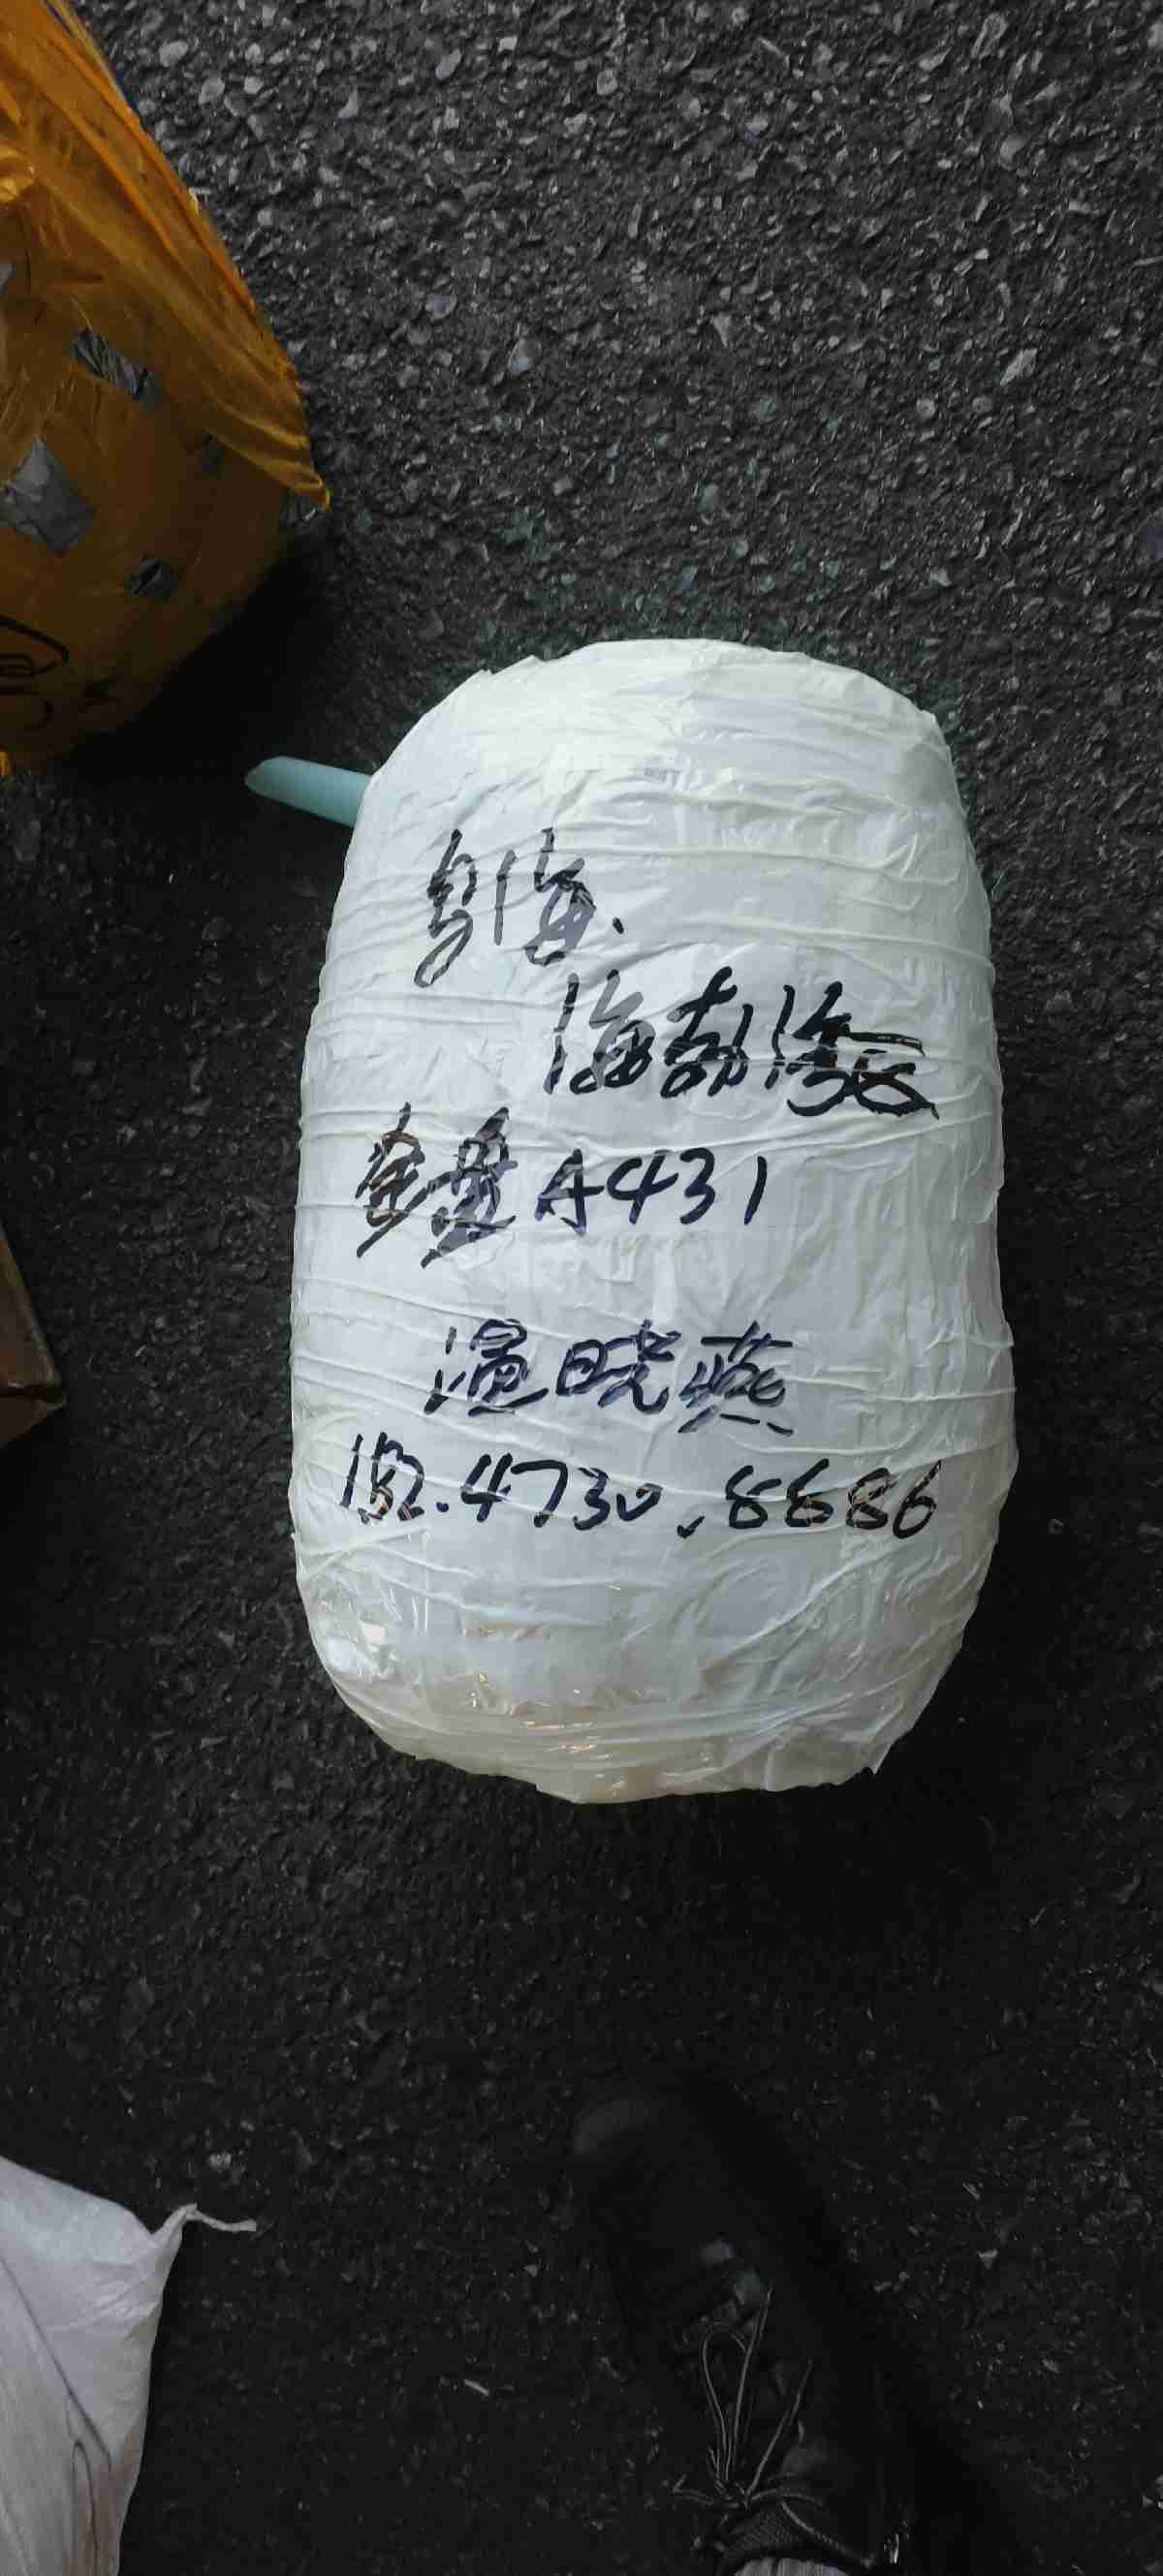 乌海
海勃湾区
金盘A431
温晓燕
182.4730.8686